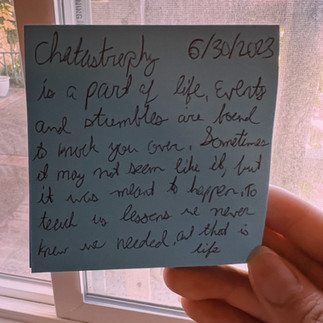 Chatastrophy 6/30/2023
is a part of life, Events
and strumbles are bound
to knock you over, Sometimes
it may not seem like it, but
it was meant to happen, To
teach us lessons we never
knew we needed, and that is
life